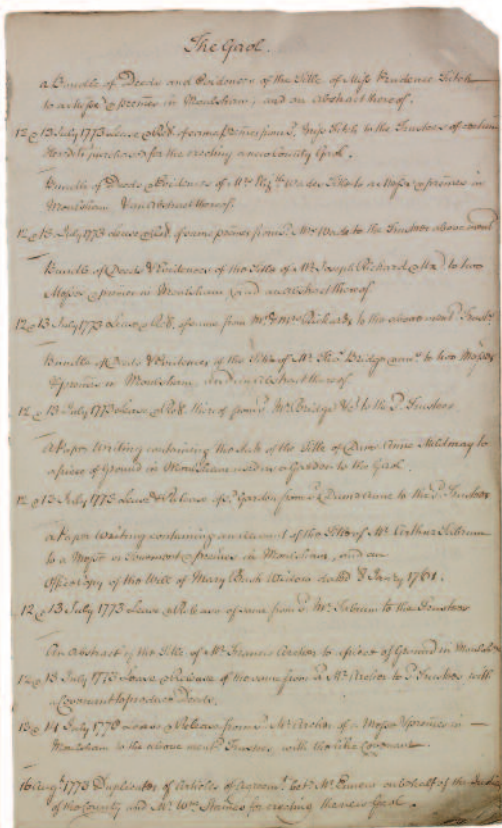 The Gaol.
a Bundle of Deeds and Evidences of the Title of Miss Prudence Fitch
to a Messe & premes in Moulsham, and an Abstract thereof.
12 & 13 July 1773 Lease & Rel. of same premes from Miss Fitch to the Trustees of certain
purchased for the erecting a new County Gaol.
Bundle of Deeds & Evidences of Mrs Wades Title to a Messe & premes in
Moulsham & an Abstract thereof.
12 & 13 July 1773 Lease & Rel. of same premes from Mrs Wade to the Trustees above
Bundle of Deeds & Evidences of the Title of Mr Joseph Richard to two
Messes & premes in Moulsham and an abstract thereof
12 & 13 July 1773 Lease & Rel. of same from Mr & Mrs Richards to the above
Bundle of Deeds & Evidences of the Title of Mr Bridge to two Messes
& premes in Moulsham, and an abstract thereof
12 & 13 July 1773 Lease & Rel. thereof from Mr Bridge to the Trustees
a Paper Writing containing the of the Title of Dame Anne Mildmay to
a piece of Ground in Moulsham used as a Garden to the Gaol.
12 & 13 July 1773 Lease & Release of Garden from Dame Anne to the Trustees
a Paper Writing containing an account of the Title of Mr Arthur
to a Messe or Tenement & premes in Moulsham, and an
Office Copy of the Will of Mary Bush Widow dated 8 1761.
12 & 13 July 1773 Lease & Release of same from Mr to the Trustees
An Abstract of the Title of Mr Francis Archer to a piece of Ground in
12 & 13 July 1773 Lease & Release of the same from Mr Archer to Trustees with
a Covenant to produce Deeds.
13 & 14 July Lease & Release from Mr Archer of a Messe & premes in
Moulsham to the above Trustees, with the like Covenant.
16 Augt. 1773 Duplicates of Articles of Agreemt. betn. Mr on behalf of the
of the County and Mr Wm. Staines for erecting the new Gaol.